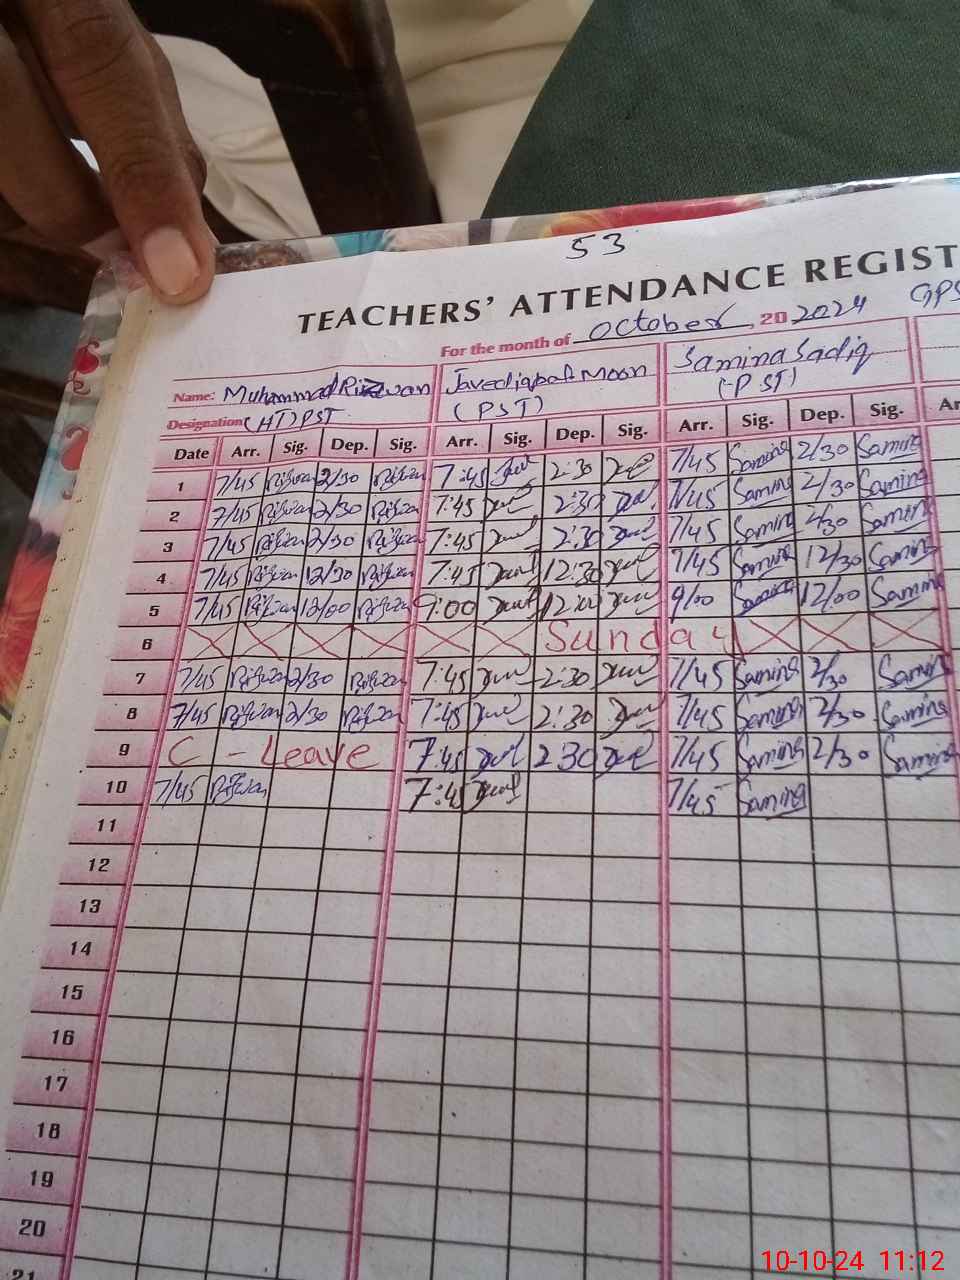 53
TEACHERS' ATTENDANCE REGIST
For the month of October, 20 2024 GPS
Name: Muhammad Rizwan Javed iqbal Moon Samina Sadiq
Designation (HT) PST (PST) (PST)
Date Arr. Sig. Dep. Sig. Arr. Sig. Dep. Sig. Arr. Sig. Dep. Sig. Ar
1 7/45 Rizwan 2/30 Rizwan 7:45 2:30 7/45 Samina 2/30 Samina
2 7/45 Rizwan 2/30 Rizwan 7:45 2:30 7/45 Samina 2/30 Samina
3 7/45 Rizwan 2/30 Rizwan 7:45 2:30 7/45 Samina 2/30 Samina
4 7/45 Rizwan 12/30 Rizwan 7:45 12:30 7/45 Samina 12/30 Samina
5 7/45 Rizwan 12/00 Rizwan 9:00 12:00 9/00 Samina 12/00 Samina
6 Sunday
7 7/45 Rizwan 2/30 Rizwan 7:45 2:30 7/45 Samina 2/30 Samina
8 7/45 Rizwan 2/30 Rizwan 7:45 2:30 7/45 Samina 2/30 Samina
9 C - Leave 7:45 2 30 7/45 Samina 2/30 Samina
10 7/45 Rizwan 7:45 7/45 Samina
11
12
13
14
15
16
17
18
19
20
21
10-10-24 11:12